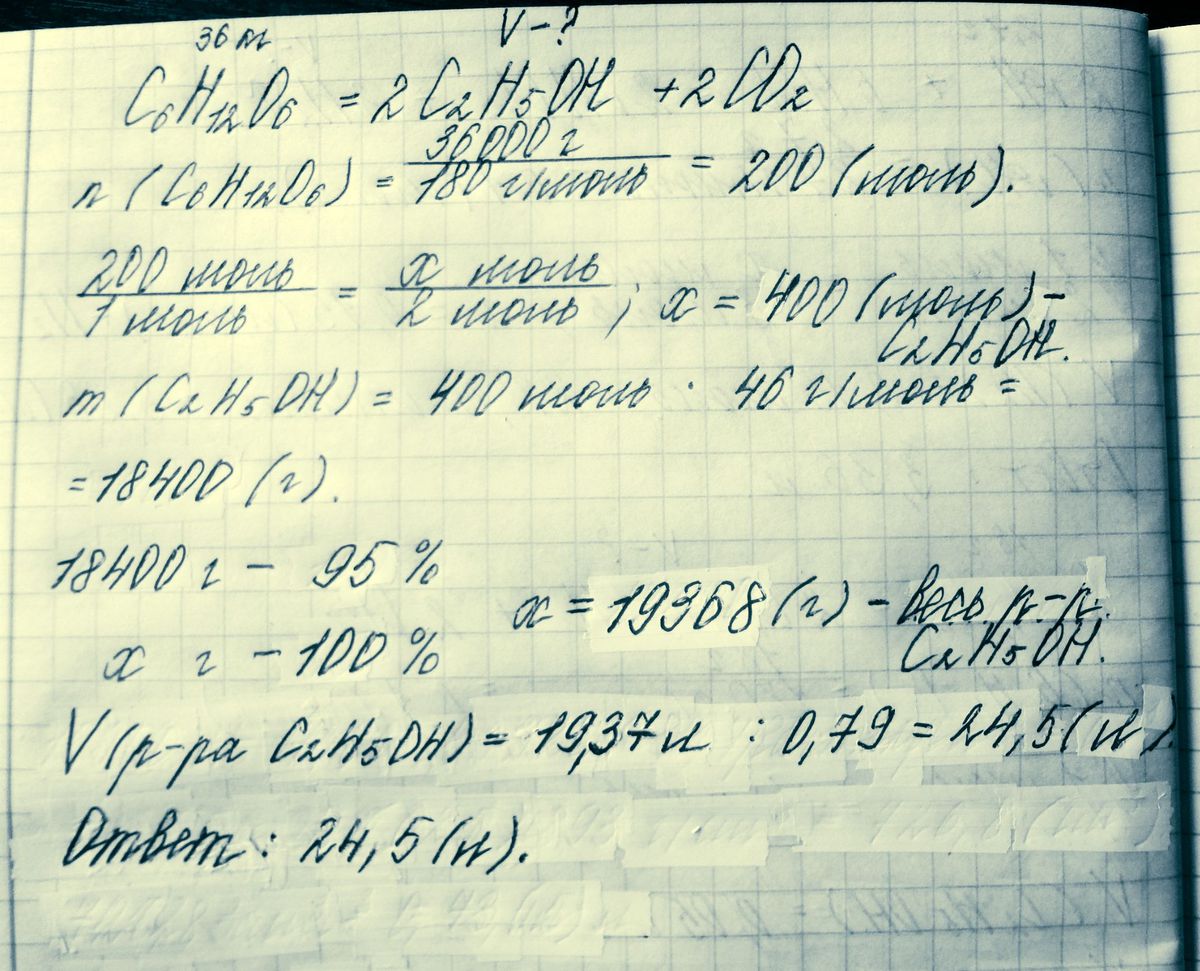 36 кг V - ?
C₆H₁₂O₆ = 2 C₂H₅OH + 2 CO₂
n (C₆H₁₂O₆) = 36000 г / 180 г/моль = 200 (моль).
200 моль / 1 моль = x моль / 2 моль ; x = 400 (моль) -
C₂H₅OH.
m (C₂H₅OH) = 400 моль · 46 г/моль =
= 18400 (г).
18400 г - 95 %
x = 19368 (г) - весь р-р.
x г - 100 %
C₂H₅OH.
V (р-ра C₂H₅OH) = 19,37 : 0,79 = 24,5 (л).
Ответ: 24,5 (л).